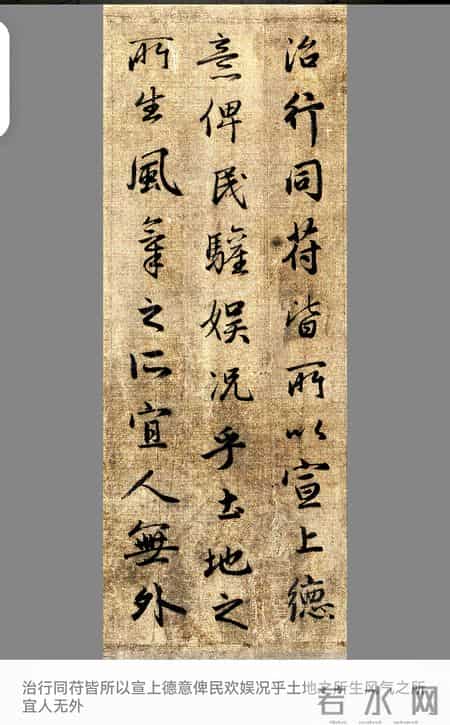 治行同苻皆所以宣上德
意俾民驩娱况乎土地之
所生風氣之所宜人無外
治行同苻皆所以宣上德意俾民欢娱况乎土地之所生风气之所
宜人无外
若水网